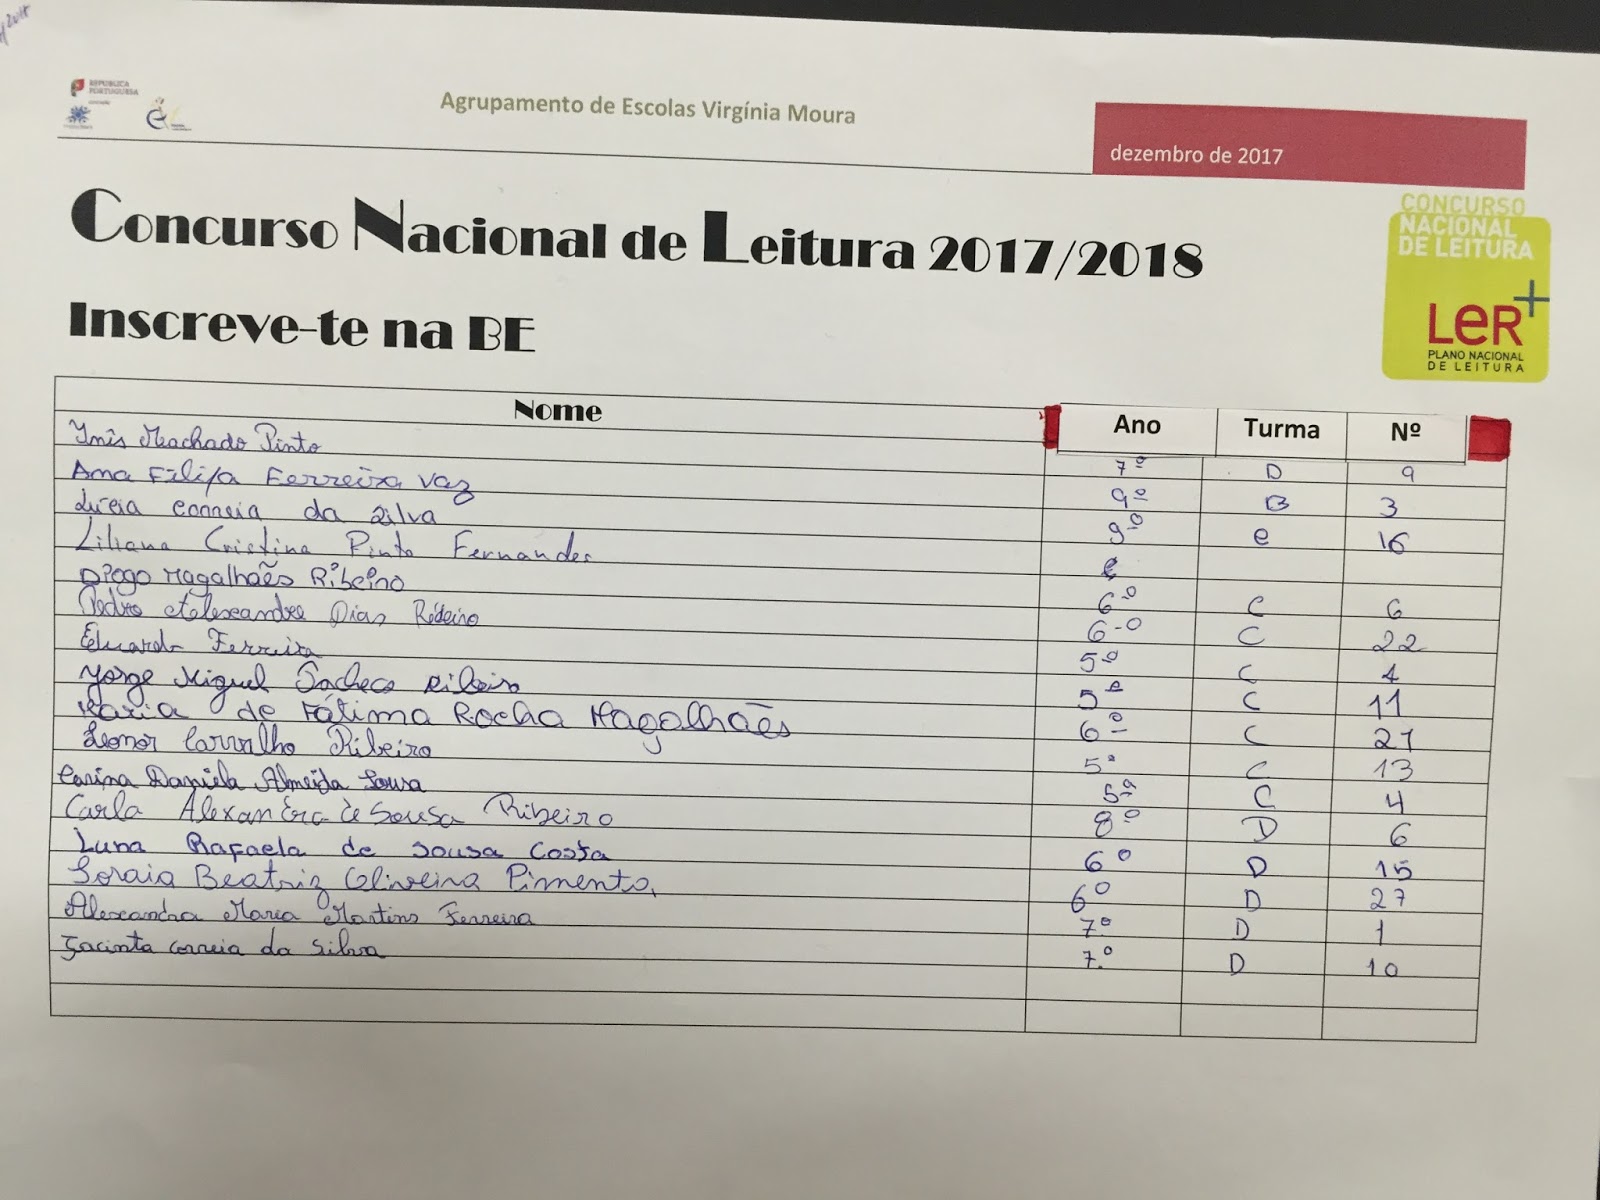 2018
REPÚBLICA
PORTUGUESA
Agrupamento de Escolas Virgínia Moura
dezembro de 2017
Concurso Nacional de Leitura 2017/2018
CONCURSO
NACIONAL
DE LEITURA
LeR+
PLANO NACIONAL
DE LEITURA
Inscreve-te na BE
Nome Ano Turma Nº
Inês Machado Pinto 7º D 9
Ana Filipa Ferreira Vaz 9º B 3
Lúcia Correia da Silva 9º e 16
Liliana Cristina Pinto Fernandes
Diogo Magalhães Ribeiro 6º C 6
Pedro Alexandre Dias Ribeiro 6º C 22
Eduardo Ferreira 5º C 4
Jorge Miguel Pacheco Ribeiro 5º C 11
Maria de Fátima Rocha Magalhães 6º C 21
Leonor Carvalho Ribeiro 5º C 13
Carina Daniela Almeida Sousa 5ª C 4
Carla Alexandra de Sousa Ribeiro 8º D 6
Luna Rafaela de Sousa Costa 6º D 15
Soraia Beatriz Oliveira Pimenta 6º D 27
Alexandra Maria Martins Ferreira 7º D 1
Jacinta Correia da Silva 7.º D 10